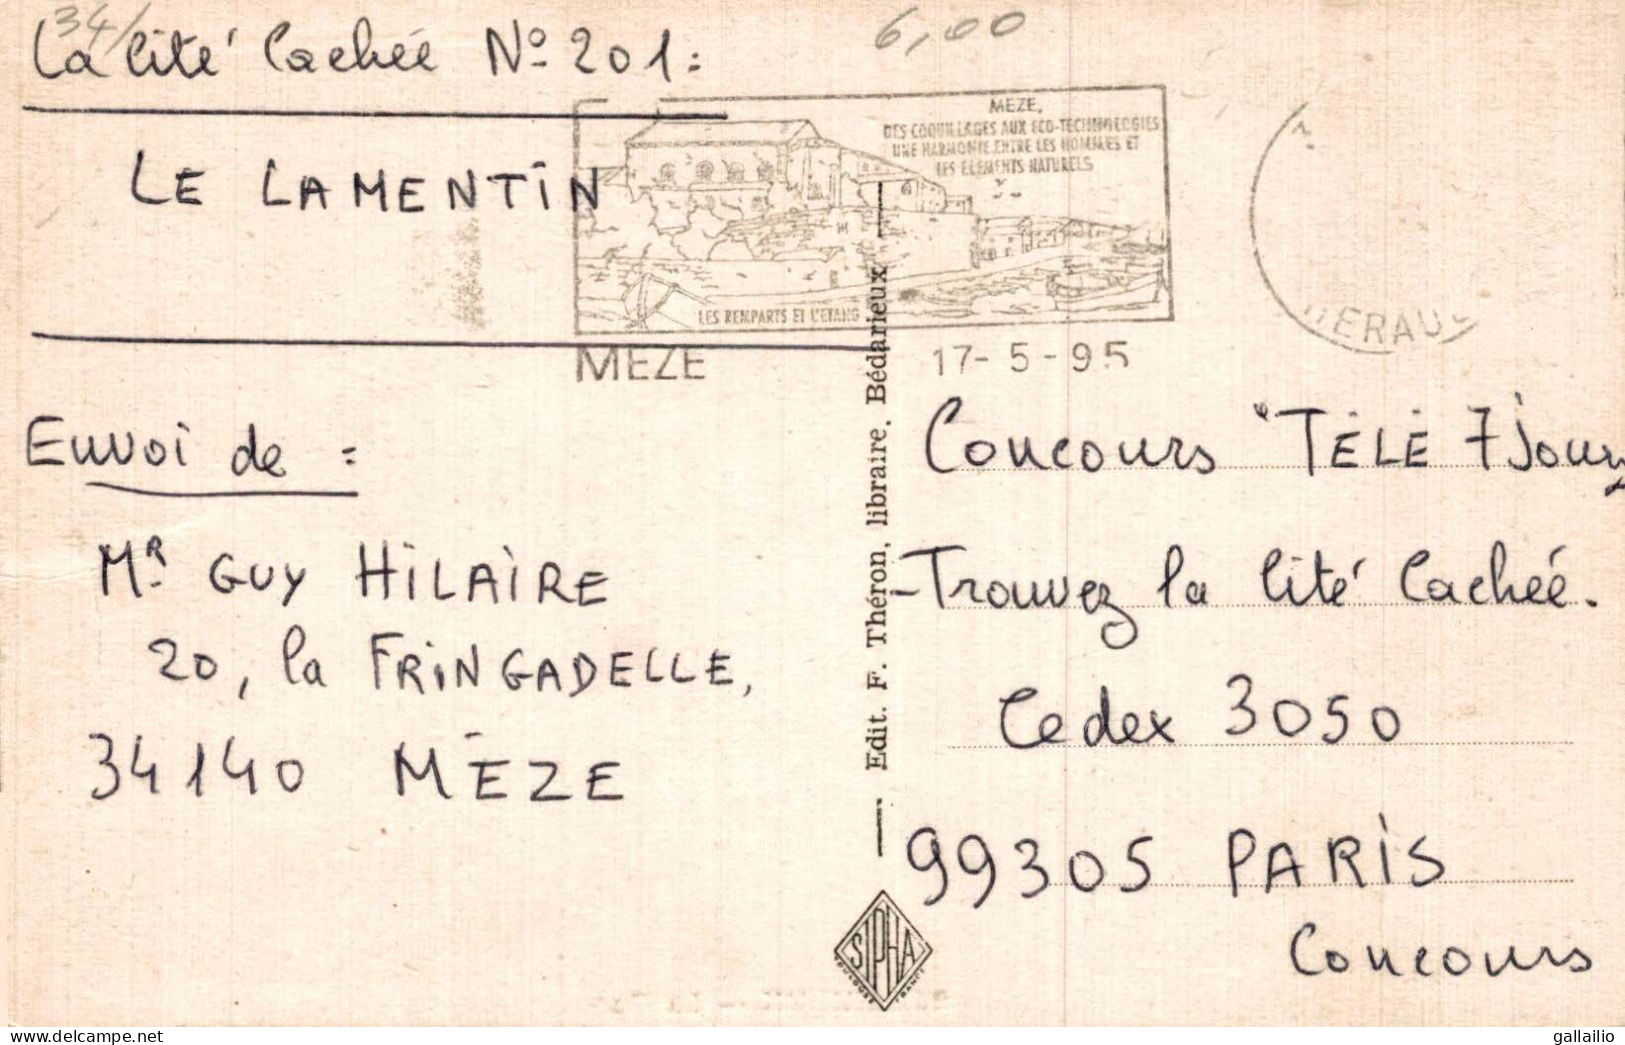 34/
6,00
La Cité Cachée Nº 201:
LE LAMENTIN
MEZE,
DES COQUILLAGES AUX ECO-TECHNOLOGIES
UNE HARMONIE ENTRE LES HOMMES ET
LES ELEMENTS NATURELS
LES REMPARTS ET L'ETANG
MEZE
17-5-95
HERAULT
Envoi de :
Mr GUY HILAIRE
20, la FRINGADELLE,
34140 MÈZE
Edit. F. Théron, libraire, Bédarieux
SIPHA
TOULOUSE FRANCE
Concours "TÉLÉ 7 Jours
Trouvez la Cité Cachée.
Cedex 3050
99305 PARIS
Concours
delcampe.net
gallailio